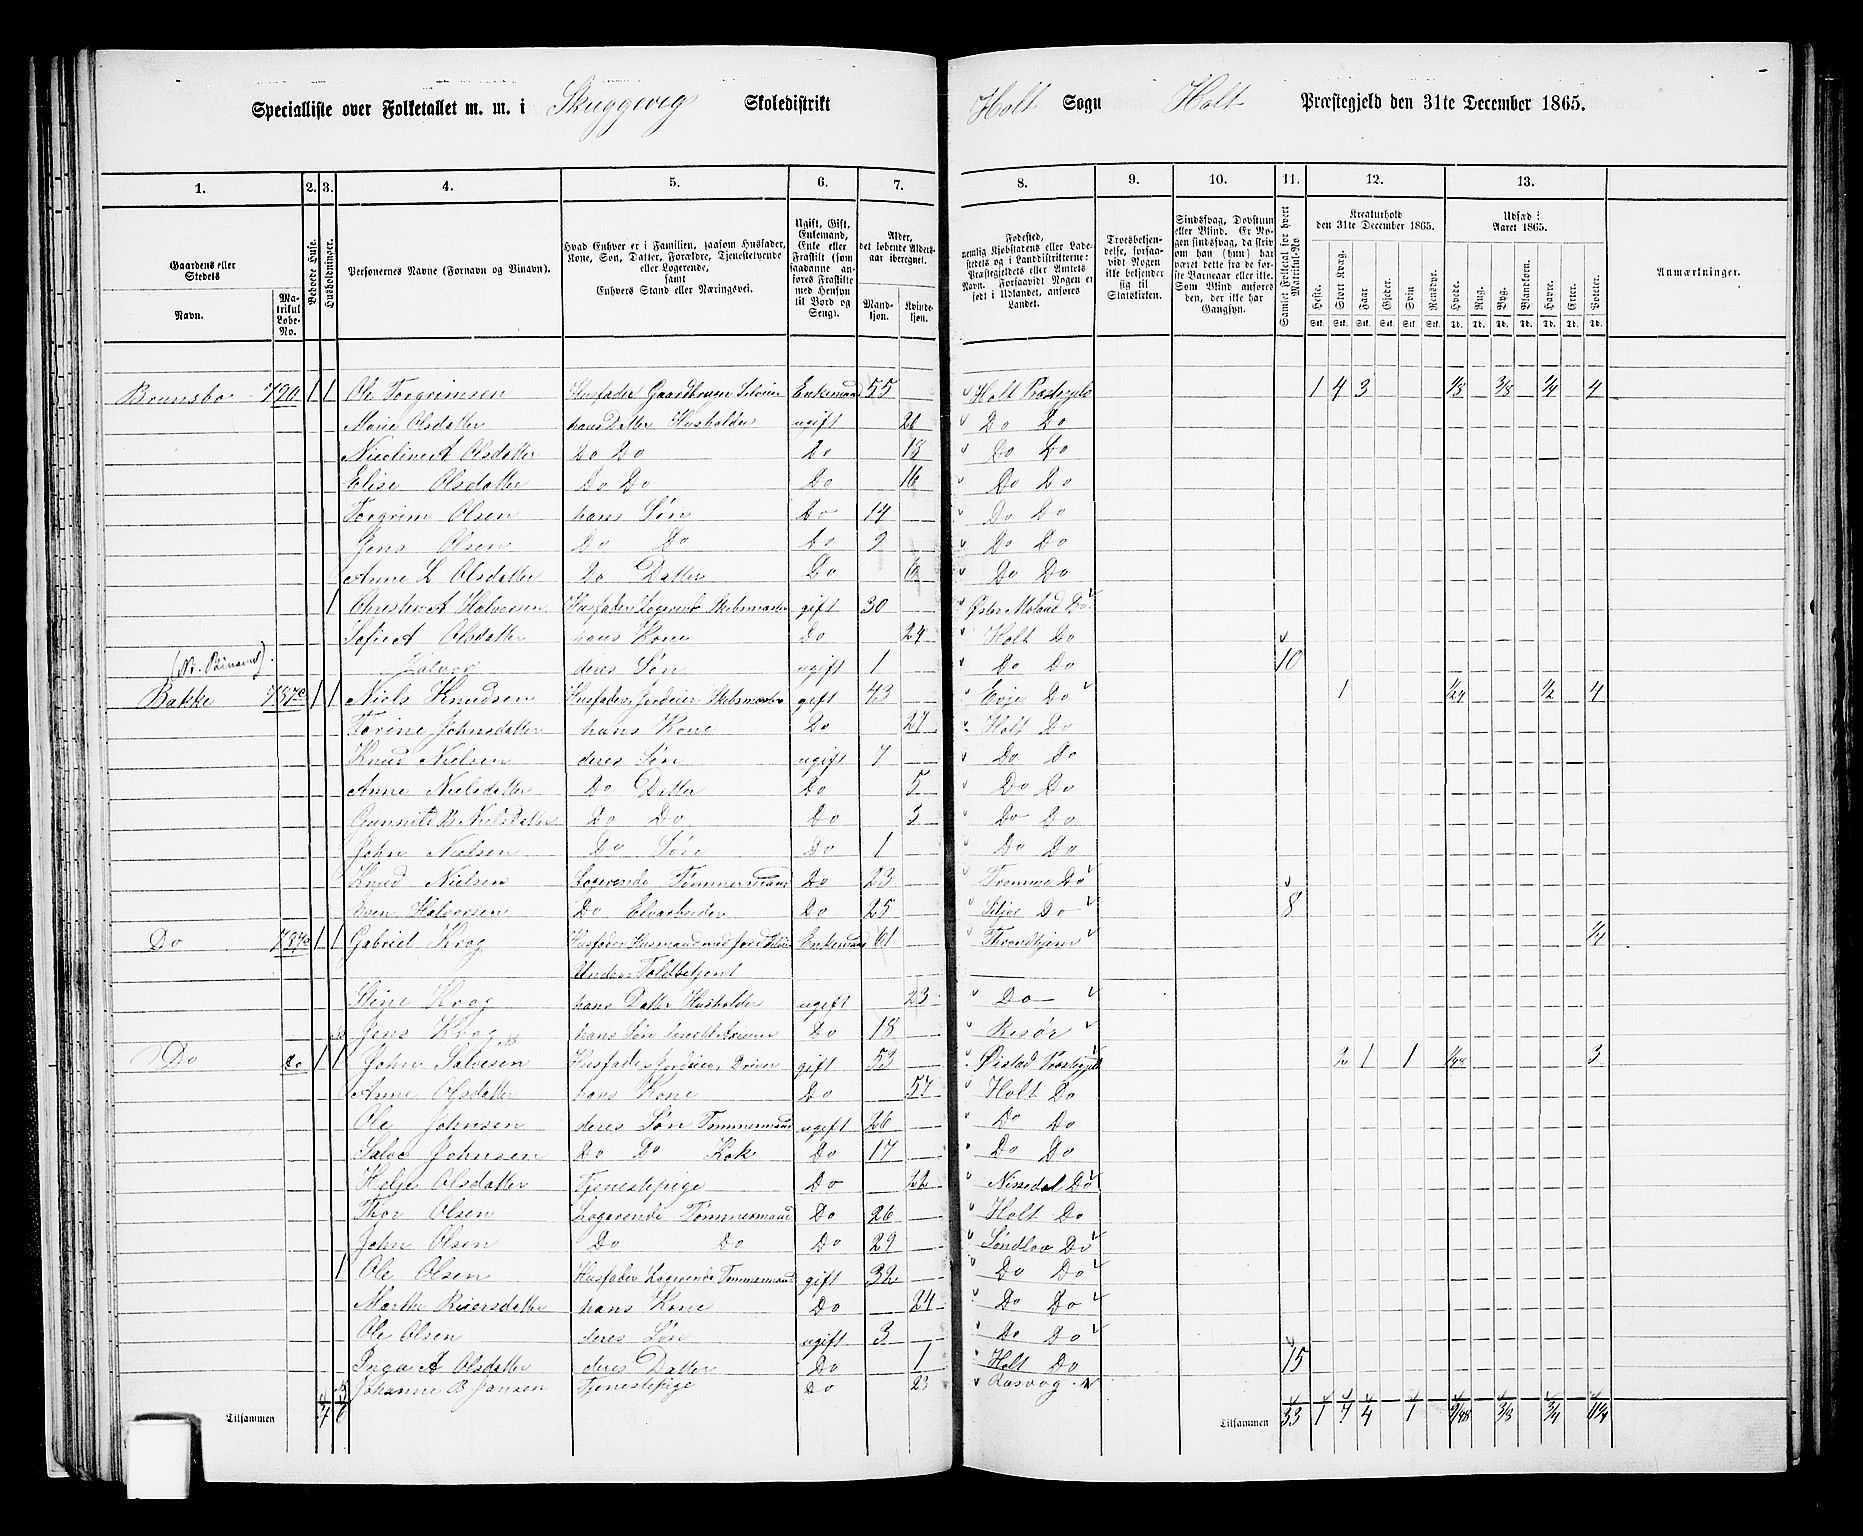 Specialliste over Folketallet m. m. i Skuggevig Skoledistrikt Holt Sogn Holt Præstegjeld den 31te December 1865.
1. 2. 3. 4. 5. 6. 7. 8. 9. 10. 11. 12. 13.
Gaardens eller Stedets
Navn. Matrikul Løbe-No.
Beboede Huse.
Husholdninger.
Personernes Navne (Fornavn og Binavn).
Hvad Enhver er i Familien, saasom Husfader, Kone, Søn, Datter, Forældre, Tjenestetyende eller Logerende, samt Enhvers Stand eller Næringsvei.
Ugift, Gift, Enkemand, Enke eller Fraskilt (som saadanne anføres Fraskilte med Hensyn til Bord og Seng).
Alder, det løbende Aldersaar iberegnet.
Mandkjøn. Kvindekjøn.
Fødested, nemlig Kjøbstadens eller Ladestedets og i Landdistrikterne: Præstegjeldets eller Amtets Navn. Forsaavidt Nogen er født i Udlandet, anføres Landet.
Troesbekjendelse, forsaavidt Nogen ikke bekjender sig til Statskirken.
Sindssvag, Døvstum eller Blind. Er Nogen sindssvag, da skrives om han (hun) har været dette fra de første Barneaar eller ikke. Som Blind anføres den, der ikke har Gangsyn.
Samlet Folketal for hvert Matrikul-No
Kreaturhold den 31te December 1865.
Heste. Stort Kvæg. Faar. Gjeder. Svin. Rensdyr.
Udsæd i Aaret 1865.
Hvede. Rug. Byg. Blandkorn. Havre. Erter. Poteter.
Anmærkninger.
Brunsbo 790 1 1 Ole Torgrimsen Husfader Gaardbruger Selveier Enkemand 55 Holt Præstegjeld 1 4 3 1/8 3/8 1/4 4
Marie Olsdatter hans Datter Husholder ugift 21 Do Do
Nicoline A Olsdatter Do Do Do 18 Do Do
Elise Olsdatter Do Do Do 16 Do Do
Torgrim Olsen hans Søn Do 14 Do Do
Jens Olsen Do Do Do 9 Do Do
Anne L Olsdatter Do Datter Do 6 Do Do
1 Christen A Halvorsen Husfader Logerende Skibsmatros gift 30 Øster Moland Do
Sofie A Olsdatter hans Kone Do 24 Holt Do
Halvor deres Søn ugift 1 Do Do 10
Bakke 787c 1 1 Niels Knudsen Husfader Jordeier gift 43 Evje Do 1 1/24 1/2 4
Torine Johnsdatter hans Kone Do 27 Holt Do
Knud Nielsen deres Søn ugift 7 Do Do
Anne Nielsdatter Do Datter Do 5 Do Do
Gunnild B Nielsdatter Do Do Do 3 Do Do
John Nielsen Do Søn Do 1 Do Do
Knud Nielsen Logerende Tømmermand Do 23 Tromme Do
Even Halvorsen Do Elvarbeider Do 25 Do 8
Do 1 1 Gabriel Krog Husfader Husmand med Jord Enkemand 61 Throndhjem 1/4
Under Toldbetjent
Stine Krog hans Datter Husholder ugift 23 Do
Jens Krog hans Søn Do 18 Risør
Do Do 1 1 John Salvesen Husfader Jordeier Driver gift 53 Øistad Præstegjeld 2 1 1 1/24 3
Anne Olsdatter hans Kone Do 57 Holt Do
Ole Johnsen deres Søn Tømmermand ugift 26 Do Do
Salve Johnsen Do Do Kok Do 17 Do Do
Helje Olsdatter Tjenestepige Do 22 Nissedal Do
Thor Olsen Logerende Tømmermand Do 26 Holt Do
John Olsen Do Do Do 29 Søndlov Do
1 Ole Olsen Husfader Logerende Tømmermand gift 32 Do Do
Marthe Reiersdatter hans Kone Do 24 Do Do
Ole Olsen deres Søn ugift 3 Do Do
Inga A Olsdatter deres Datter Do 1 Holt Do 15
Johanne B Jansen Tjenestepige Do 23
Tilsammen
Tilsammen 33 1 7 4 1 9/48 3/8 3/4 11 1/4